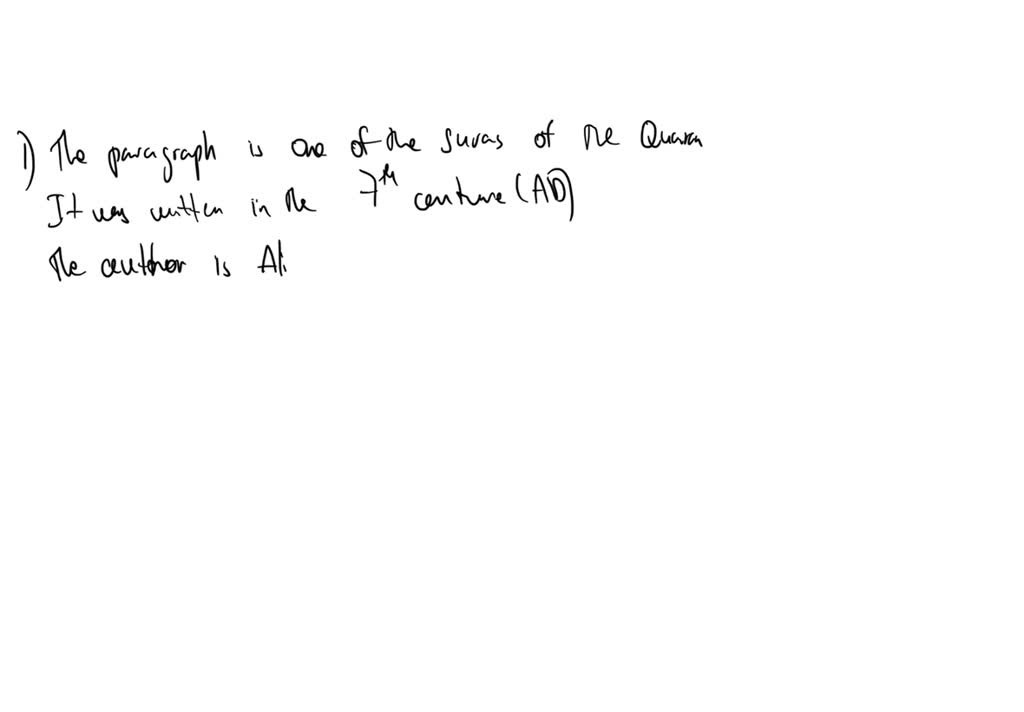 1) The paragraph is one of the suras of the Quran
It was written in the 7th centure (AD)
The author is Ali